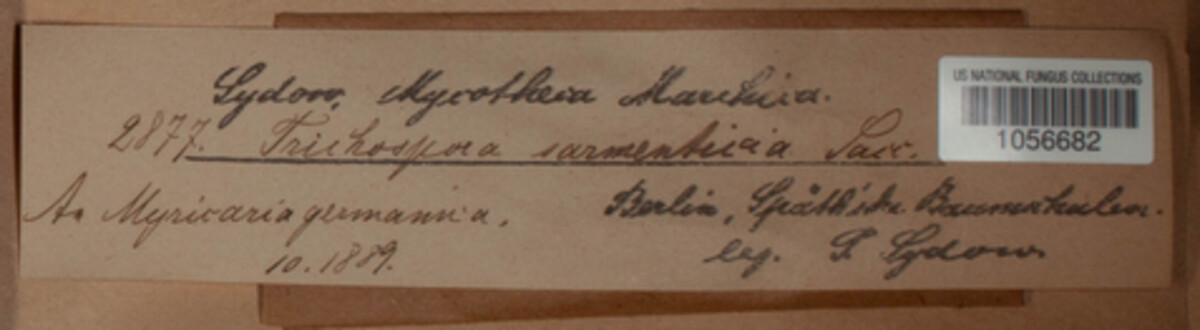 Sydow, Mycotheca Marchica.
2877. Trichospora sarmenticia Sacc.
An Myricaria germanica.
10.1889.
Berlin, Späth'sche Baumschulen.
leg. P. Sydow
US NATIONAL FUNGUS COLLECTIONS
1056682